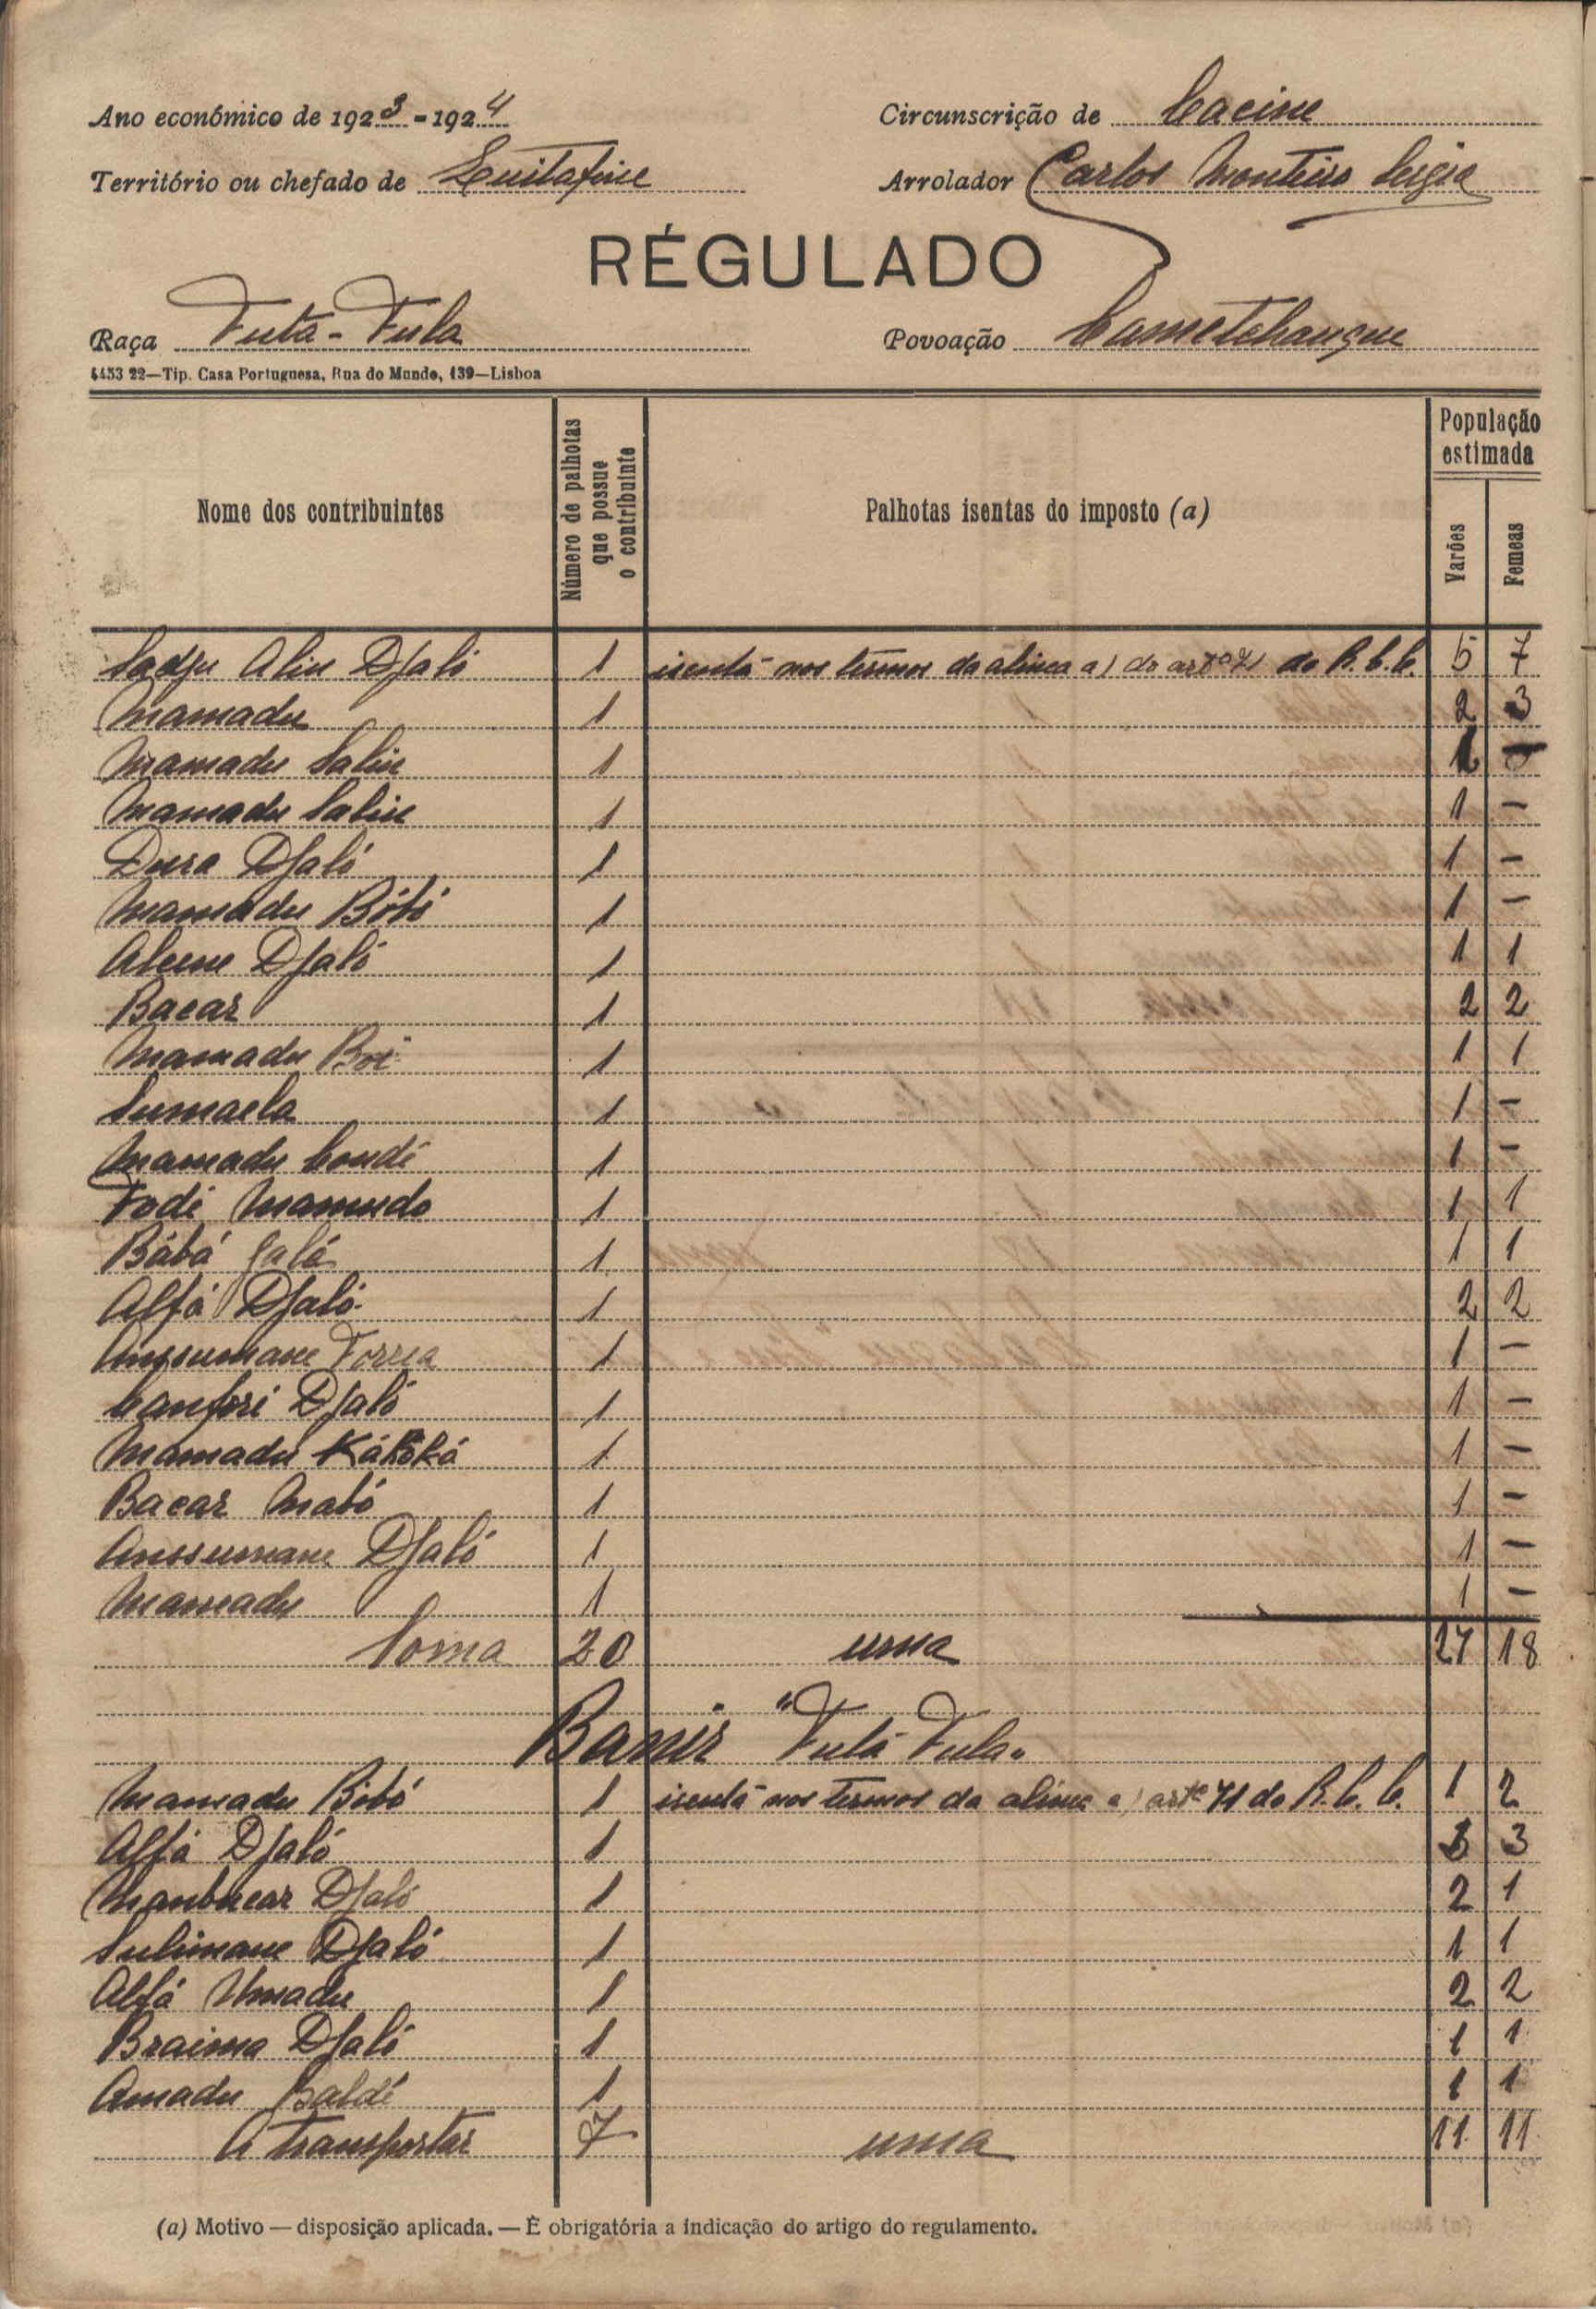 Ano económico de 1923-1924 Circunscrição de Cacine
Território ou chefado de Quitafine Arrolador Carlos Monteiro
RÉGULADO
Raça Futa-Fula Povoação Cametchangue
4453 22—Tip. Casa Portuguesa, Rua do Mundo, 139—Lisboa
Nome dos contribuintes Número de palhotas que possue o contribuinte Palhotas isentas do imposto (a) População estimada Varões Femeas
Sadju Aliu Djaló 1 isentá nos termos da alinea a) do artº 71 do R.C.C. 5 7
Mamadu 1 2 3
Mamadu Saliu 1 1 -
Mamadu Saliu 1 1 -
Dura Djaló 1 1 -
Mamadu Bóbó 1 1 -
Aleene Djaló 1 1 1
Bacar 1 2 2
Mamadu Boi 1 1 1
Sumaela 1 1 -
Mamadu Condé 1 1 -
Fodé Mamudo 1 1 1
Bábá Jaló 1 1 1
Alfá Djaló 1 2 2
Anssumane 1 1 -
Canfori Djaló 1 1 -
Mamadu 1 1 -
Bacar Mató 1 1 -
Anssumane Djaló 1 1 -
Mamadu 1 1 -
Soma 20 uma 27 18
Banir "Futá Fula"
Mamadu Bobó 1 isentá nos termos da alinea a) artº 71 do R.C.C. 1 2
Alfá Djaló 1 3 3
Manbucar Djaló 1 2 1
Sulimane Djaló 1 1 1
Alfá Umadu 1 2 2
Braima Djaló 1 1 1
Amadu Baldé 1 1 1
A transportar 7 uma 11 11
(a) Motivo — disposição aplicada. — É obrigatória a indicação do artigo do regulamento.